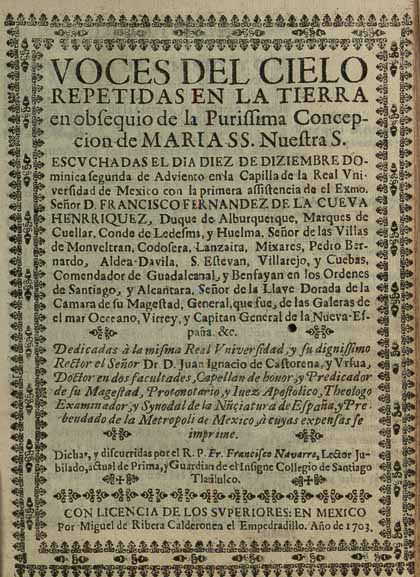 VOCES DEL CIELO
REPETIDAS EN LA TIERRA
en obsequio de la Purissima Concep-
cion de MARIA SS. Nuestra S.
ESCVCHADAS EL DIA DIEZ DE DIZIEMBRE DO-
minica segunda de Adviento en la Capilla de la Real Vni-
versidad de Mexico con la primera assistencia de el Exmo.
Señor D. FRANCISCO FERNANDEZ DE LA CUEVA
HENRRIQUEZ, Duque de Alburquerque, Marques de
Cuellar, Conde de Ledesma, y Huelma, Señor de las Villas
de Monveltran, Codosera, Lanzaita, Mixares, Pedro Ber-
nardo, Aldea-Davila, S. Estevan, Villarejo, y Cuebas,
Comendador de Guadalcanal, y Benfayan en los Ordenes
de Santiago, y Alcantara, Señor de la Llave Dorada de la
Camara de su Magestad, General, que fue, de las Galeras de
el mar Occeano, Virrey, y Capitan General de la Nueva-Es-
paña. &c.
Dedicadas à la misma Real Vniversidad, y su dignissimo
Rector el Señor Dr. D. Juan Ignacio de Castorena, y Vrsua,
Doctor en dos facultades, Capellan de honor, y Predicador
de su Magestad, Protonotario, y Iuez Apostolico, Theologo
Examinador, y Synodal de la Nũciatura de España, y Pre-
bendado de la Metropoli de Mexico, à cuyas expensas se
imprime.
Dichas, y discurridas por el R. P. Fr. Francisco Navarro, Lector Ju-
bilado, actual de Prima, y Guardian de el Insigne Collegio de Santiago
Tlatilulco.
CON LICENCIA DE LOS SVPERIORES: EN MEXICO
Por Miguel de Ribera Calderon en el Empedradillo. Año de 1703.